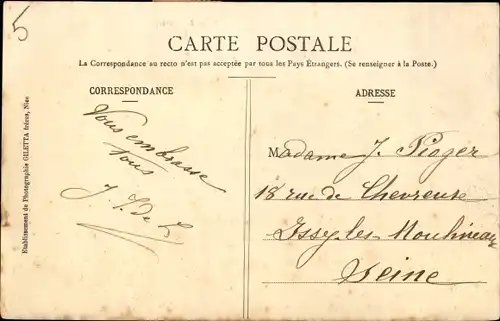 5
CARTE POSTALE
La Correspondance au recto n'est pas acceptée par tous les Pays Étrangers. (Se renseigner à la Poste.)
CORRESPONDANCE
ADRESSE
Vous embrasse
Tous
Madame J. Pioger
18 rue de Chevreuse
Issy les Moulineaux
Seine
Etablissement de Photographie GILETTA frères, Nice